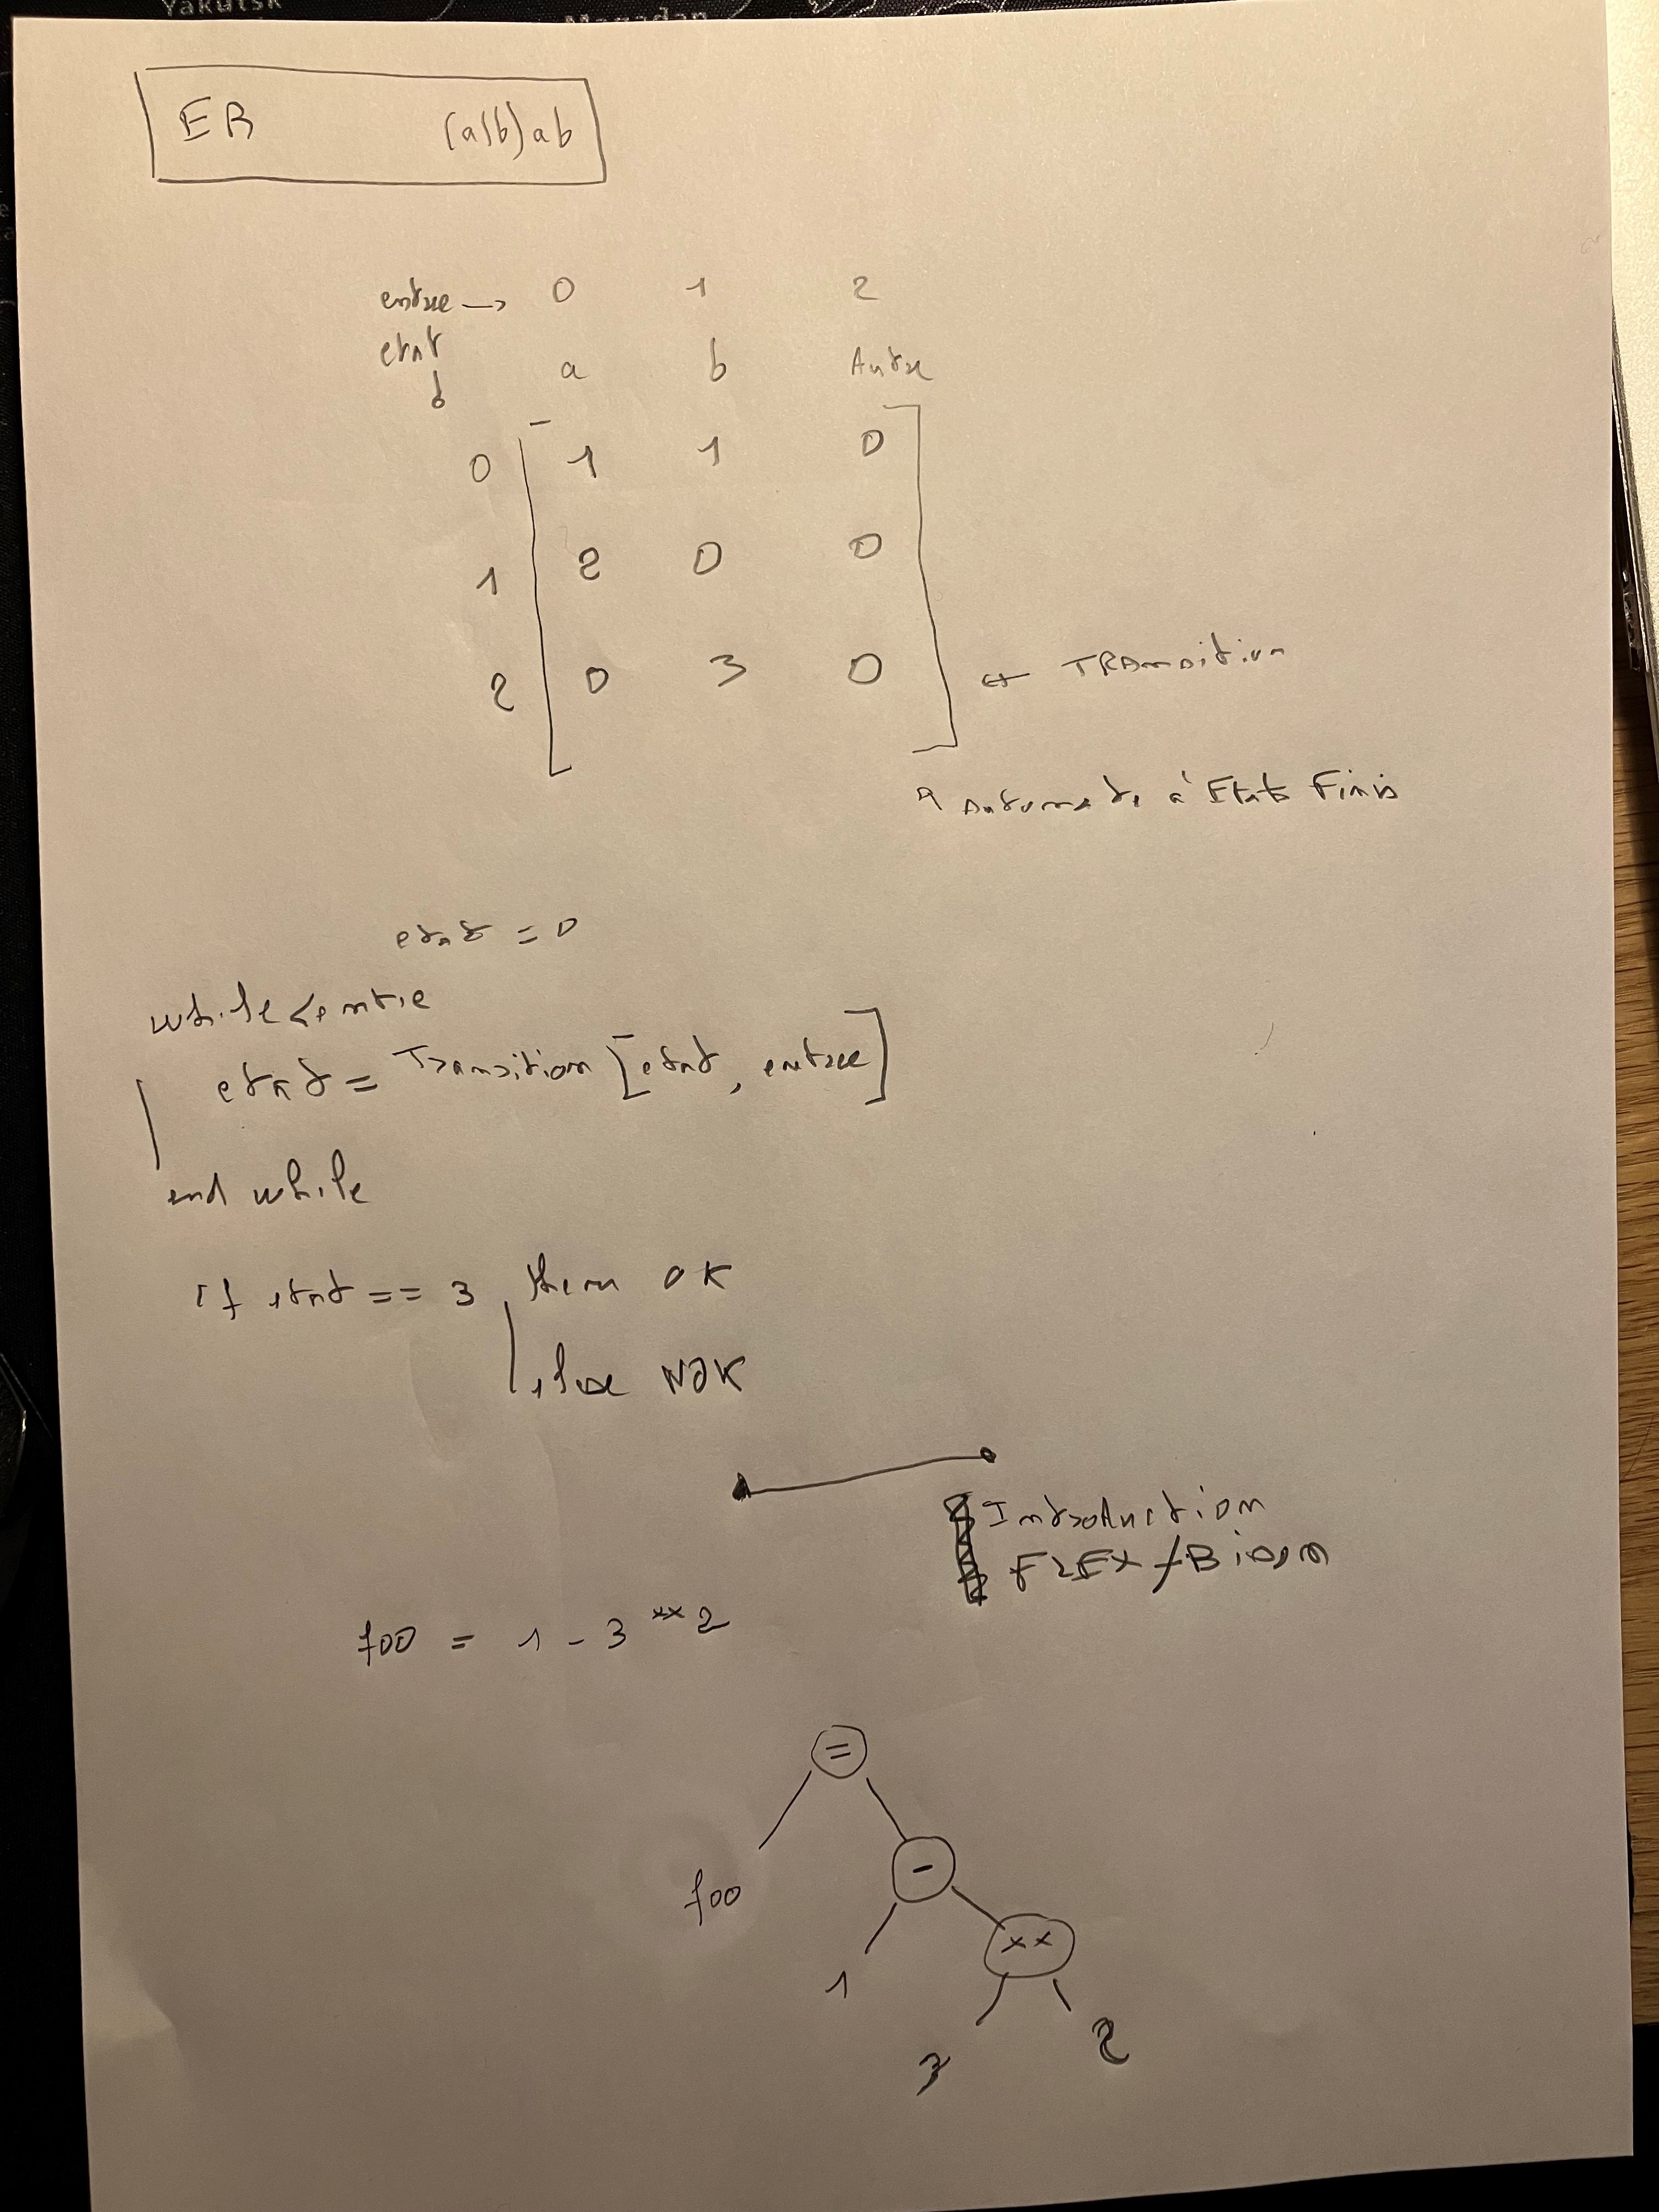 Yakutsk
Magadan
ER (a|b)ab
entree → 0 1 2
etat
a b Autre
0 1 1 0
1 2 0 0
2 0 3 0
← TRAnsition
Automate à Etats Finis
etat = 0
while
etat = Transition [etat, entree]
end while
if etat == 3 then OK
else NOK
Introduction
FLEX / Bison
foo = 1 - 3 ** 2
=
foo
-
1
**
3 2